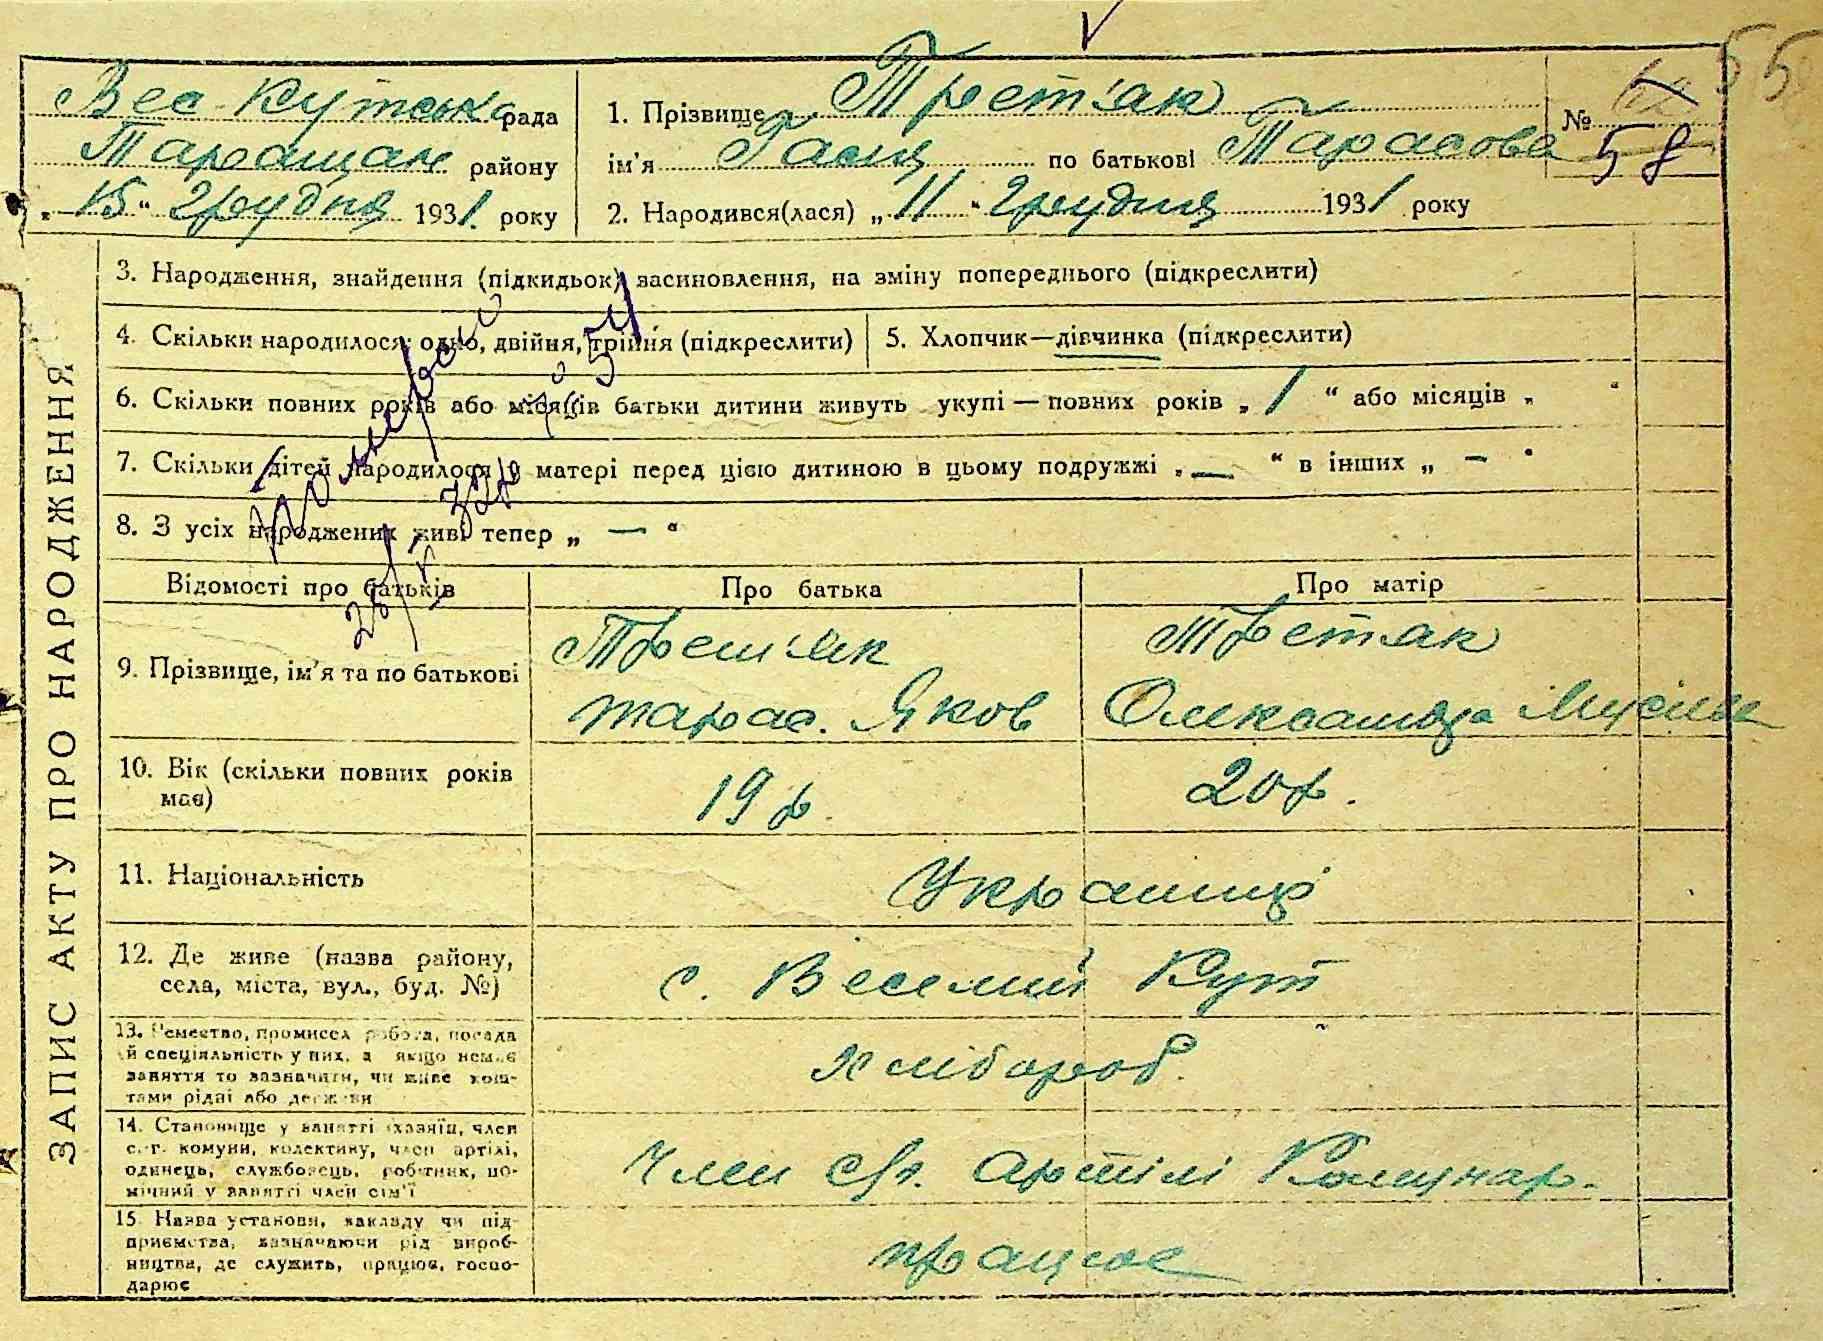 55
Вес-Кутська рада
Таращан району
„15“ Грудня 1931. року
1. Прізвище Трет'як
ім'я Гася по батькові Тарасова
2. Народився(лася) „11“ Грудня 1931 року
№ 58
ЗАПИС АКТУ ПРО НАРОДЖЕННЯ
3. Народження, знайдення (підкидьок) засиновлення, на зміну попереднього (підкреслити)
4. Скільки народилося: одно, двійня, трійня (підкреслити)
5. Хлопчик—дівчинка (підкреслити)
6. Скільки повних років або місяців батьки дитини живуть укупі — повних років „ 1 “ або місяців „ “
7. Скільки дітей народилося у матері перед цією дитиною в цьому подружжі „ — “ в інших „ — “
8. З усіх народжених живі тепер „ — “
Відомості про батьків
Про батька
Про матір
9. Прізвище, ім'я та по батькові
Трет'як
Тарас. Яков
Третяк
Олександра
10. Вік (скільки повних років має)
19 р.
20 р.
11. Національність
Українці
12. Де живе (назва району,
села, міста, вул., буд. №)
с. Веселий Кут
13. Ремество, промисел робота, посада
й спеціяльність у них, а якщо немає
заняття то зазначити, чи живе кош-
тами рідні або держави
хлібороб.
14. Становище у занятті (хазяїн, член
с.-г. комуни, колективу, член артілі,
одинець, службовець, робітник, по-
мічний у занятті член сім'ї
Член с/г. артілі Комунар.
15. Назва установи, закладу чи під-
приємства, зазначаючи рід вироб-
ництва, де служить, працює, госпо-
дарює
працює